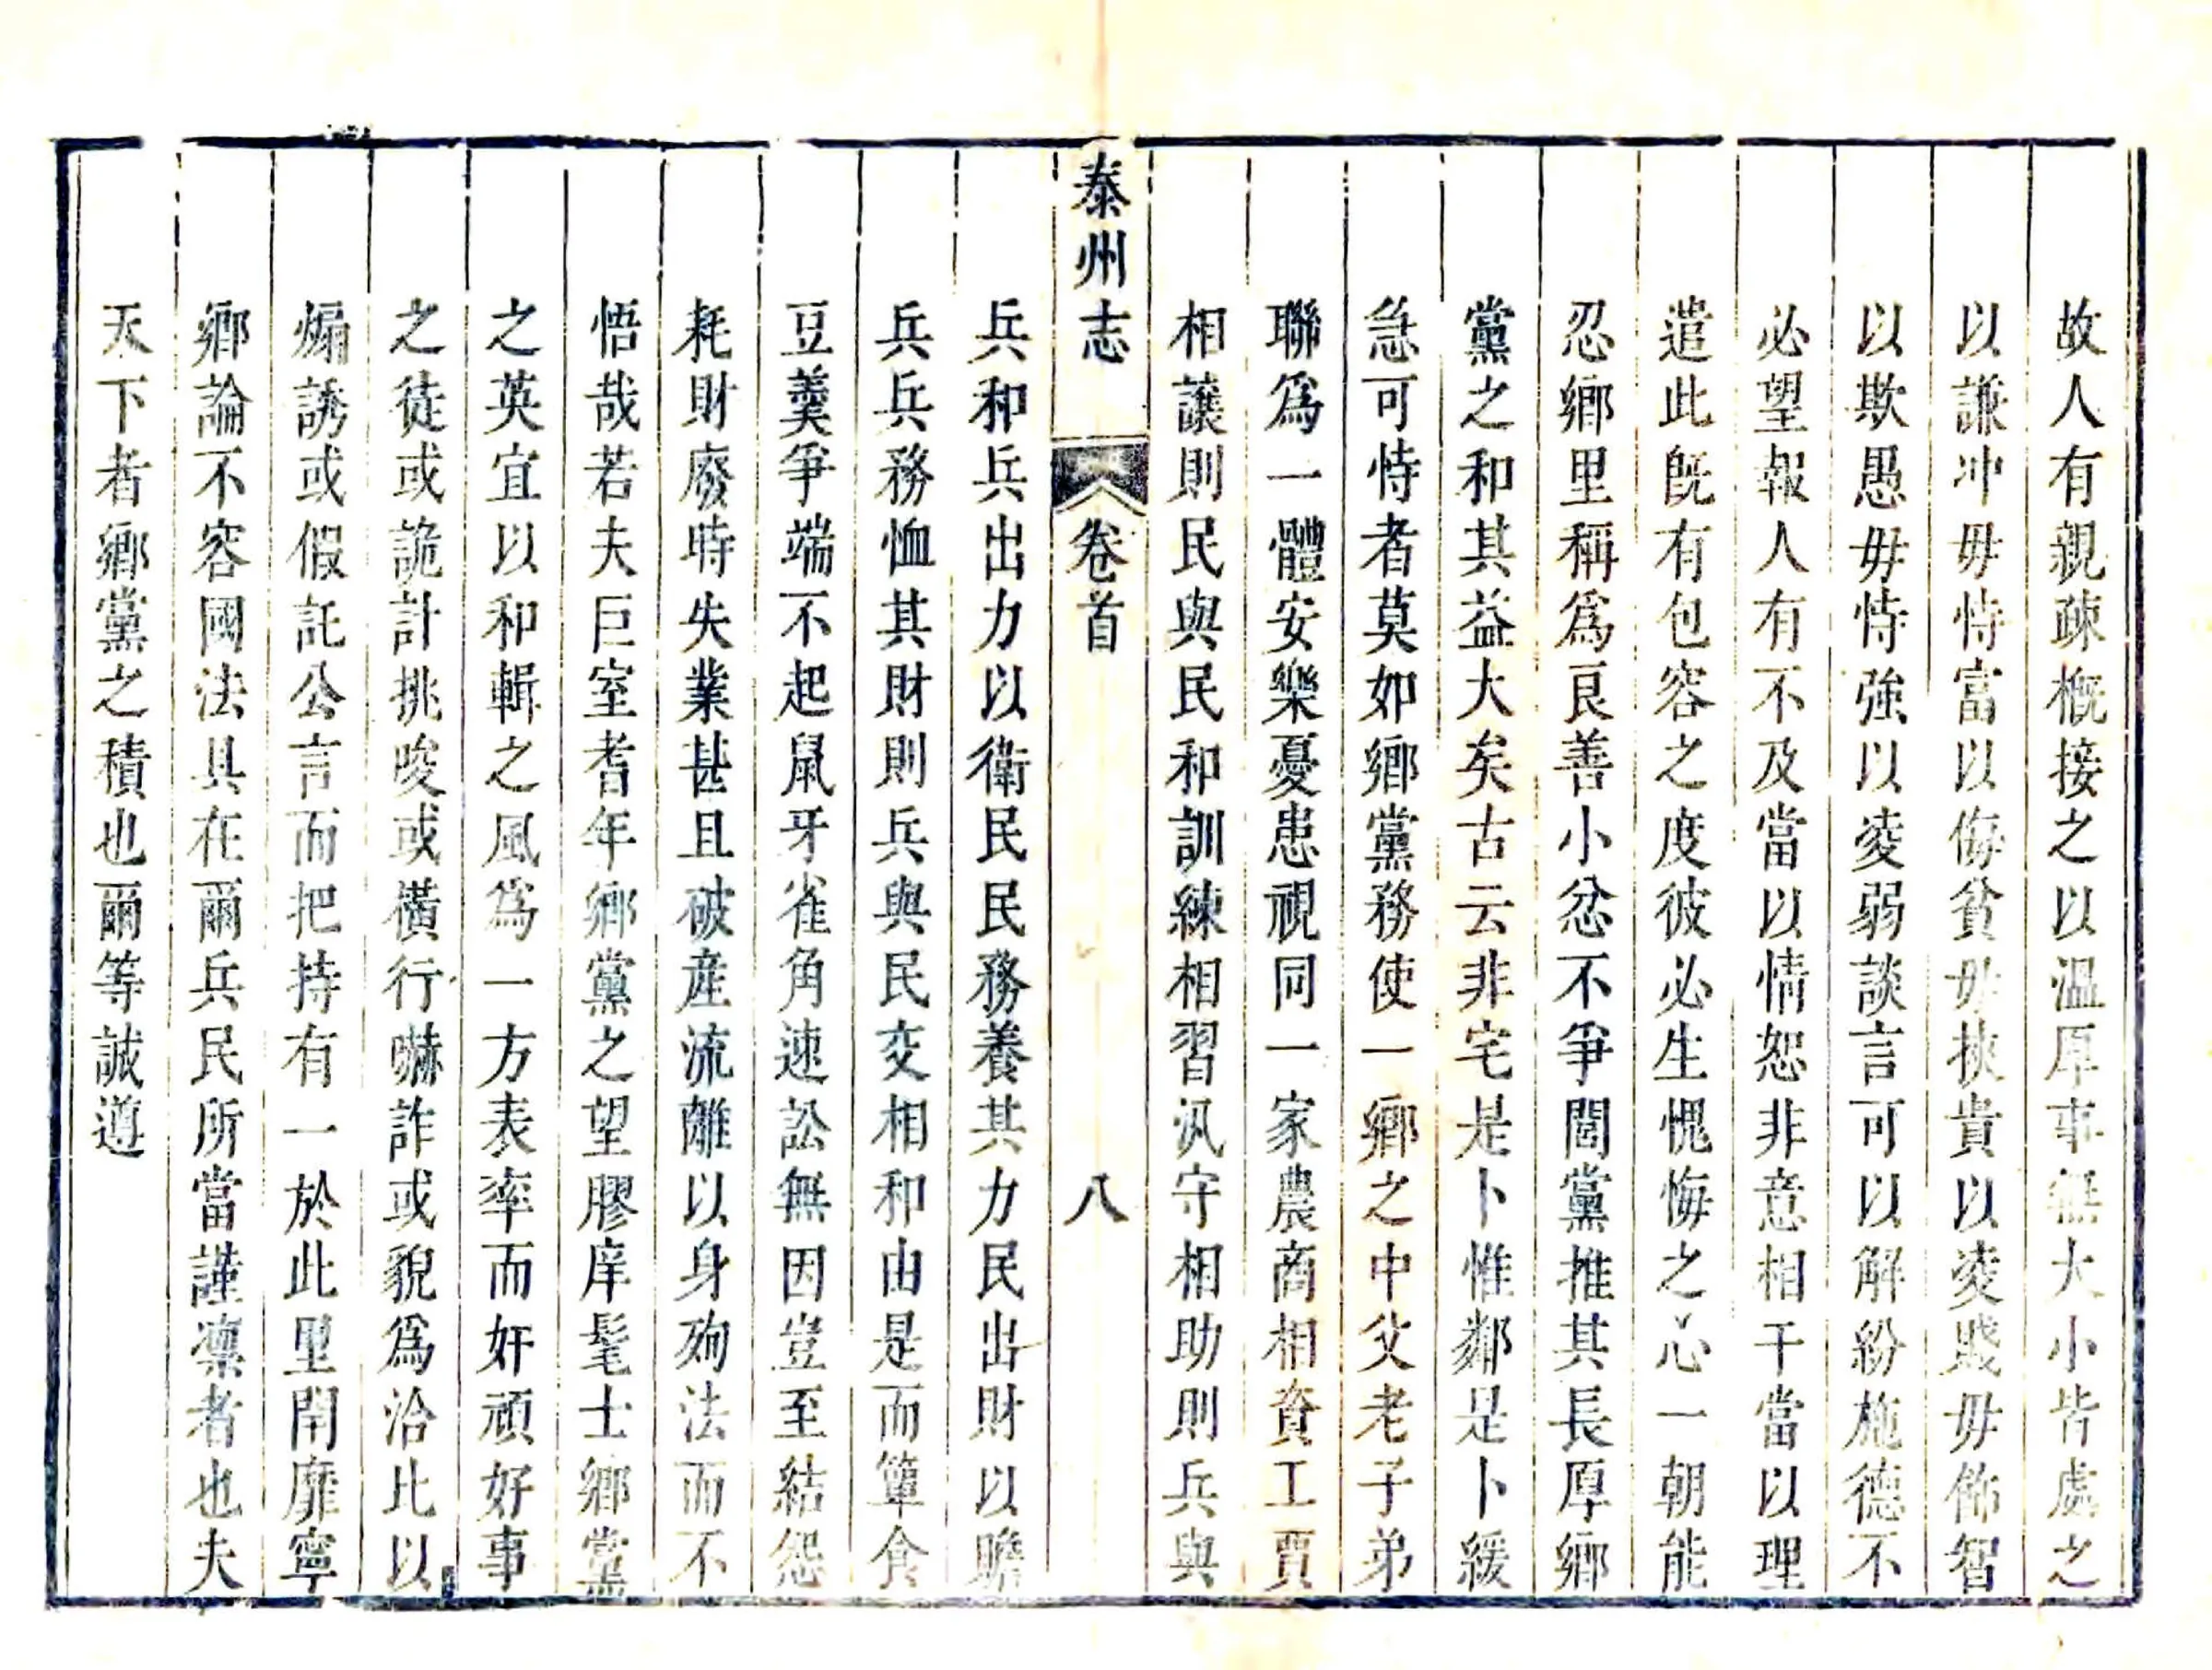 故人有親疎概接之以温厚事無大小皆處之
以謙冲毋恃富以侮貧毋挾貴以凌賤毋飾智
以欺愚毋恃強以凌弱談言可以解紛施德不
必望報人有不及當以情恕非意相干當以理
遣此旣有包容之度彼必生愧悔之心一朝能
忍鄉里稱爲良善小忿不爭閭黨推其長厚鄉
黨之和其益大矣古云非宅是卜惟鄰是卜緩
急可恃者莫如鄉黨務使一鄉之中父老子弟
聯爲一體安樂憂患視同一家農商相資工賈
相讓則民與民和訓練相習汛守相助則兵與
泰州志 卷首 八
兵和兵出力以衛民民務養其力民出財以贍
兵兵務恤其財則兵與民交相和由是而簞食
豆羹爭端不起鼠牙雀角速訟無因豈至結怨
耗財廢時失業甚且破産流離以身殉法而不
悟哉若夫巨室耆年鄉黨之望膠庠髦士鄉黨
之英宜以和輯之風爲一方表率而奸頑好事
之徒或詭計挑唆或橫行嚇詐或貌爲洽比以
煽誘或假託公言而把持有一於此里閈靡寧
鄉論不容國法具在爾兵民所當謹凛者也夫
天下者鄉黨之積也爾等誠遵